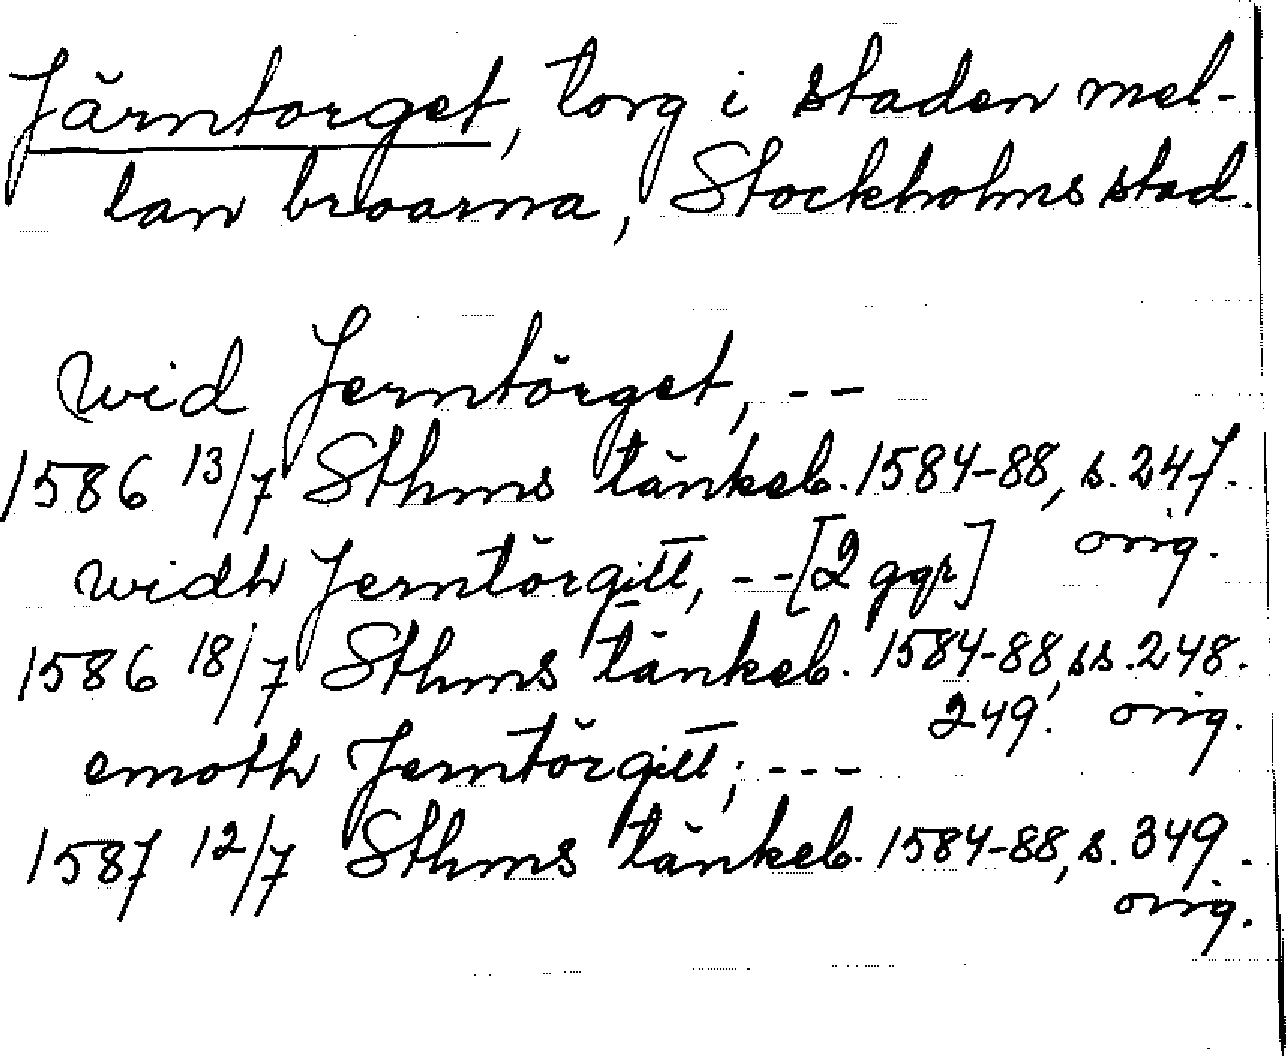 Järntorget, torg i staden mel-
lan broarna, Stockholms stad.
wid Jerntörget, --
1586 13/7 Sthms tänkeb. 1584-88, s. 247.
orig.
widh Jerntörgitt, -- [2 ggr]
1586 18/7 Sthms tänkeb. 1584-88, ss. 248.
249. orig.
emoth Jerntörgitt, ---
1587 12/7 Sthms tänkeb. 1584-88, s. 349.
orig.